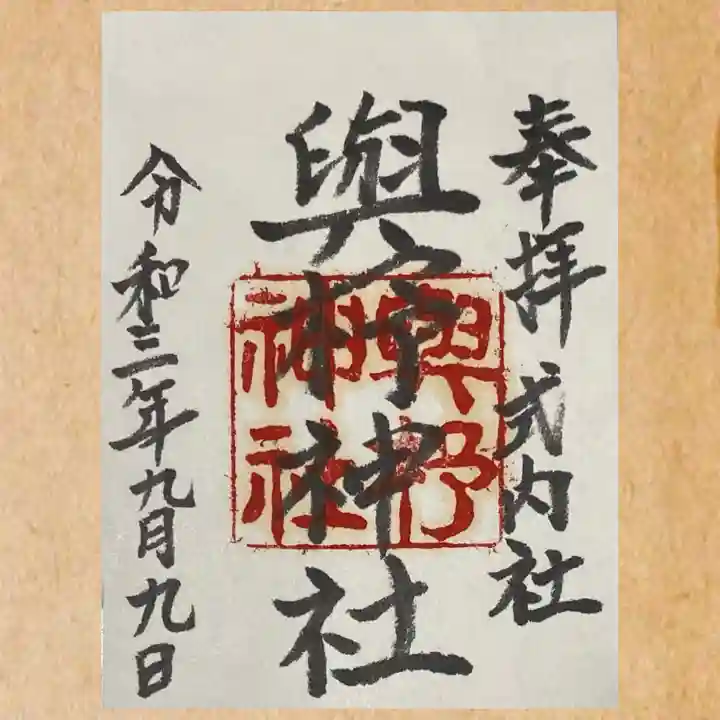 奉拝 式内社
與杼神社
與杼
神社
令和三年九月九日